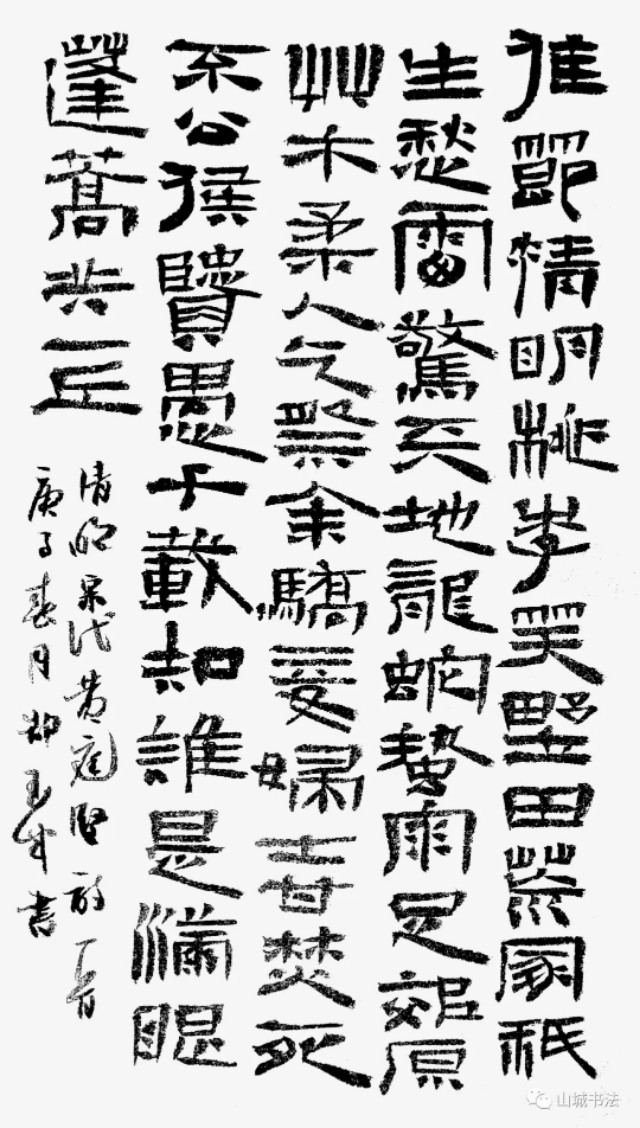 佳節清明桃李笑野田荒冢祇
生愁雷驚天地龍蛇蟄雨足郊原
艸木柔人乞祭余驕妾婦士甘焚死
不公侯賢愚千載知誰是滿眼
蓬蒿共一丘
清明宋代黄庭堅詩一首
庚子春月書
山城书法